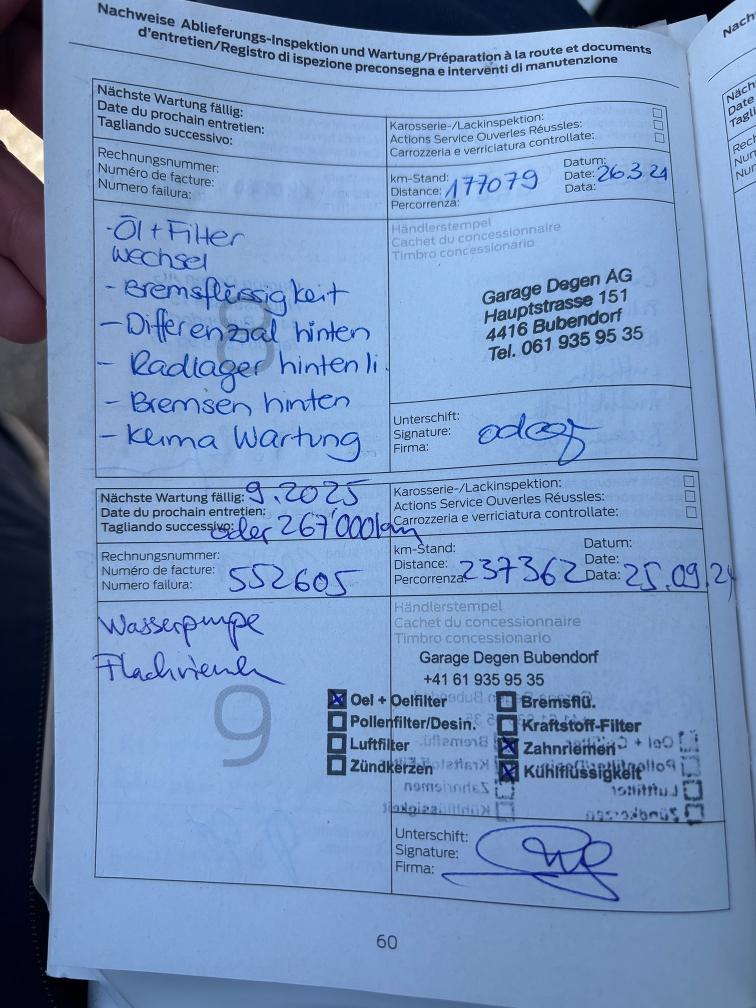 Nachweise Ablieferungs-Inspektion und Wartung/Préparation à la route et documents
d'entretien/Registro di ispezione preconsegna e interventi di manutenzione
Nächste Wartung fällig:
Date du prochain entretien:
Tagliando successivo:
Karosserie-/Lackinspektion:
Actions Service Ouverles Réussles:
Carrozzeria e verriciatura controllate:
Rechnungsnummer:
Numéro de facture:
Numero failura:
km-Stand:
Distance: 177079
Percorrenza:
Datum:
Date: 26.3.21
Data:
-Öl + Filter
Wechsel
- Bremsflüssigkeit
- Differenzial hinten
- Radlager hinten li.
- Bremsen hinten
- Klima Wartung
8
Händlerstempel
Cachet du concessionnaire
Timbro concessionario
Garage Degen AG
Hauptstrasse 151
4416 Bubendorf
Tel. 061 935 95 35
Unterschrift:
Signature:
Firma:
Nächste Wartung fällig: 9.2025
Date du prochain entretien:
Tagliando successivo: oder 267'000km
Karosserie-/Lackinspektion:
Actions Service Ouverles Réussles:
Carrozzeria e verriciatura controllate:
Rechnungsnummer:
Numéro de facture:
Numero failura: 552605
km-Stand:
Distance:
Percorrenza: 237362
Datum:
Date:
Data: 25.09.24
Wasserpumpe
9
Händlerstempel
Cachet du concessionnaire
Timbro concessionario
Garage Degen Bubendorf
+41 61 935 95 35
Oel + Oelfilter
Pollenfilter/Desin.
Luftfilter
Zündkerzen
Bremsflü.
Kraftstoff-Filter
Zahnriemen
Kühlflüssigkeit
Unterschrift:
Signature:
Firma:
60